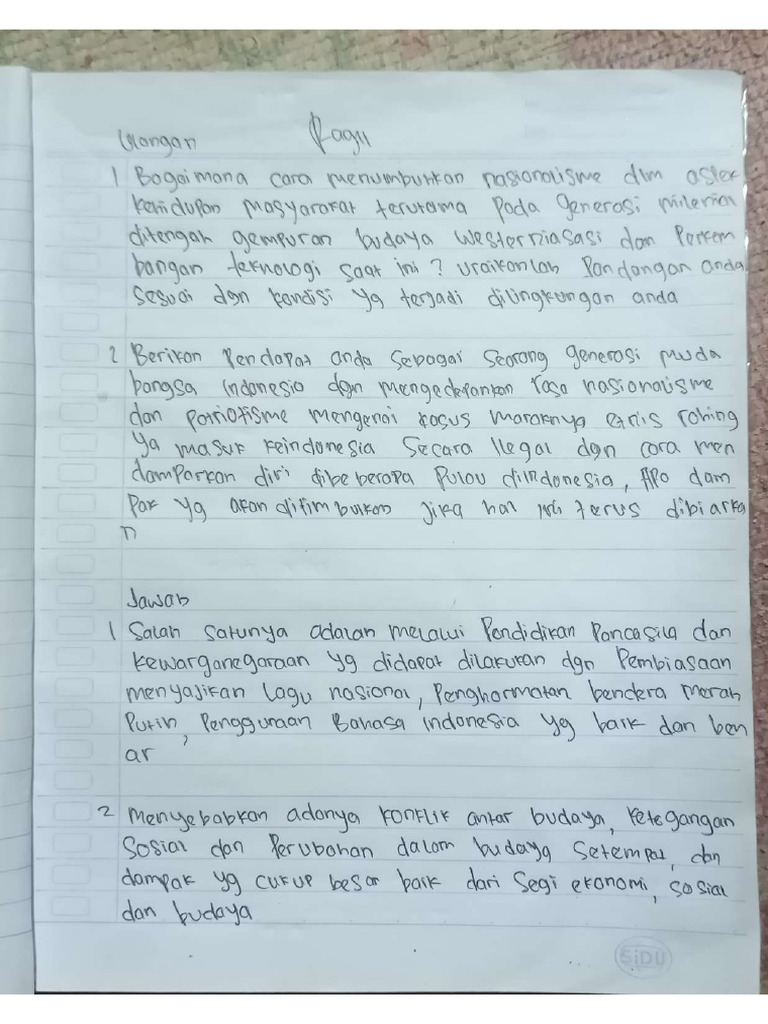 Ulangan Ragu
1 Bagaimana cara menumbuhkan nasionalisme dlm aspek
kehidupan masyarakat terutama pada generasi milenia
ditengah gempuran budaya westerniasasi dan Perkem
bangan teknologi saat ini? Uraikanlah Pandangan anda
sesuai dgn kondisi yg terjadi dilingkungan anda
2 Berikan Pendapat anda sebagai seorang generasi muda
bangsa indonesia dgn mengedepankan rasa nasionalisme
dan patriotisme mengenai kasus maraknya etnis rohing
ya masuk keindonesia secara ilegal dgn cara men
damparkan diri dibeberapa Pulau diindonesia, Apa dam
pak yg akan ditimbulkan jika hal ini terus dibiarka
n
Jawab
1 Salah satunya adalah melalui Pendidikan Pancasila dan
kewarganegaraan yg didapat dilakukan dgn Pembiasaan
menyajikan lagu nasional, Penghormatan bendera merah
Putih, Penggunaan Bahasa indonesia yg baik dan ben
ar
2 Menyebabkan adanya konflik antar budaya, ketegangan
Sosial dan Perubahan dalam budaya setempat, dan
dampak yg cukup besar baik dari segi ekonomi, sosial
dan budaya
SiDU